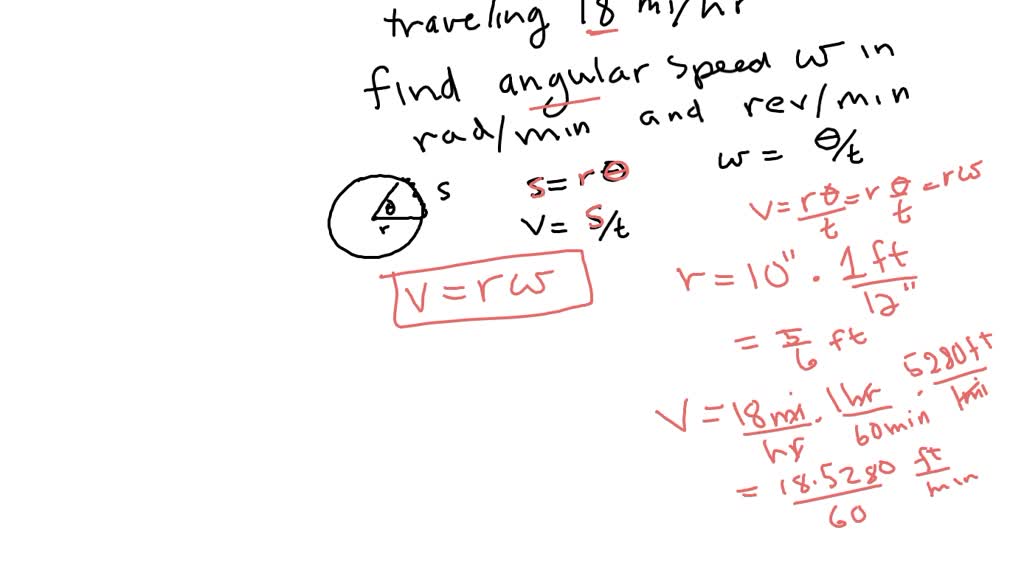 traveling 18 mi/hr
find angular speed w in
rad/min and rev/min
w = θ/t
s
θ
r
s = rθ
v = s/t
v = rθ/t = r θ/t = rw
v = rw
r = 10" · 1 ft/12"
= 5/6 ft
v = 18 mi/hr · 1hr/60min · 5280ft/1mi
= 18·5280/60 ft/min